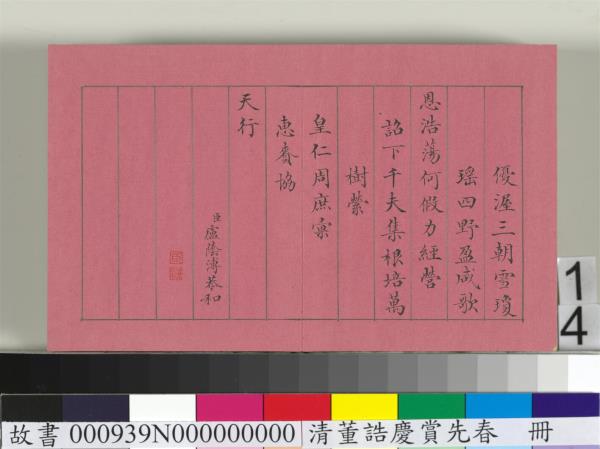 優渥三朝雪瓊
瑶四野盈咸歌
恩浩蕩何假力經營
詔下千夫集根培萬
樹縈
皇仁周庶彙
惠賚協
天行
臣盧蔭溥恭和
14
故書 000939N000000000 清董誥慶賞先春 冊